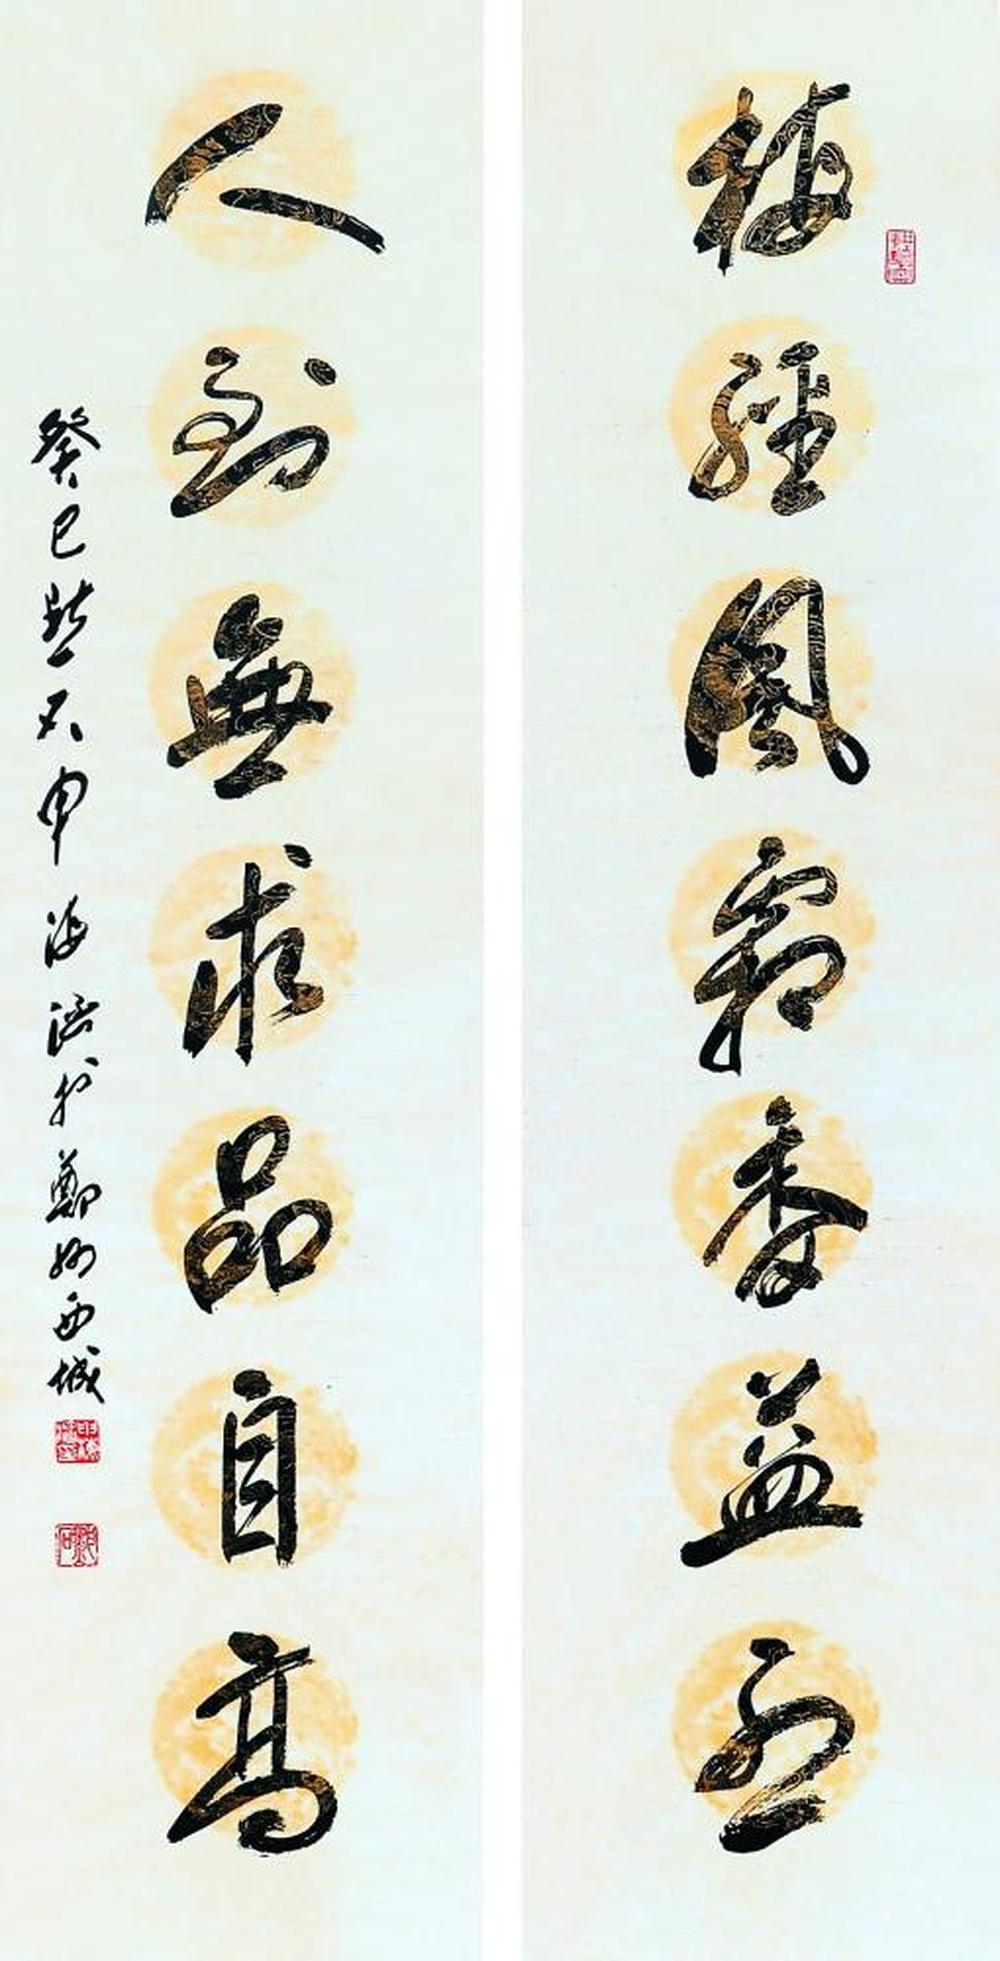 梅經風霜香益烈
人到無求品自高
癸巳 申海濤於鄭州西城